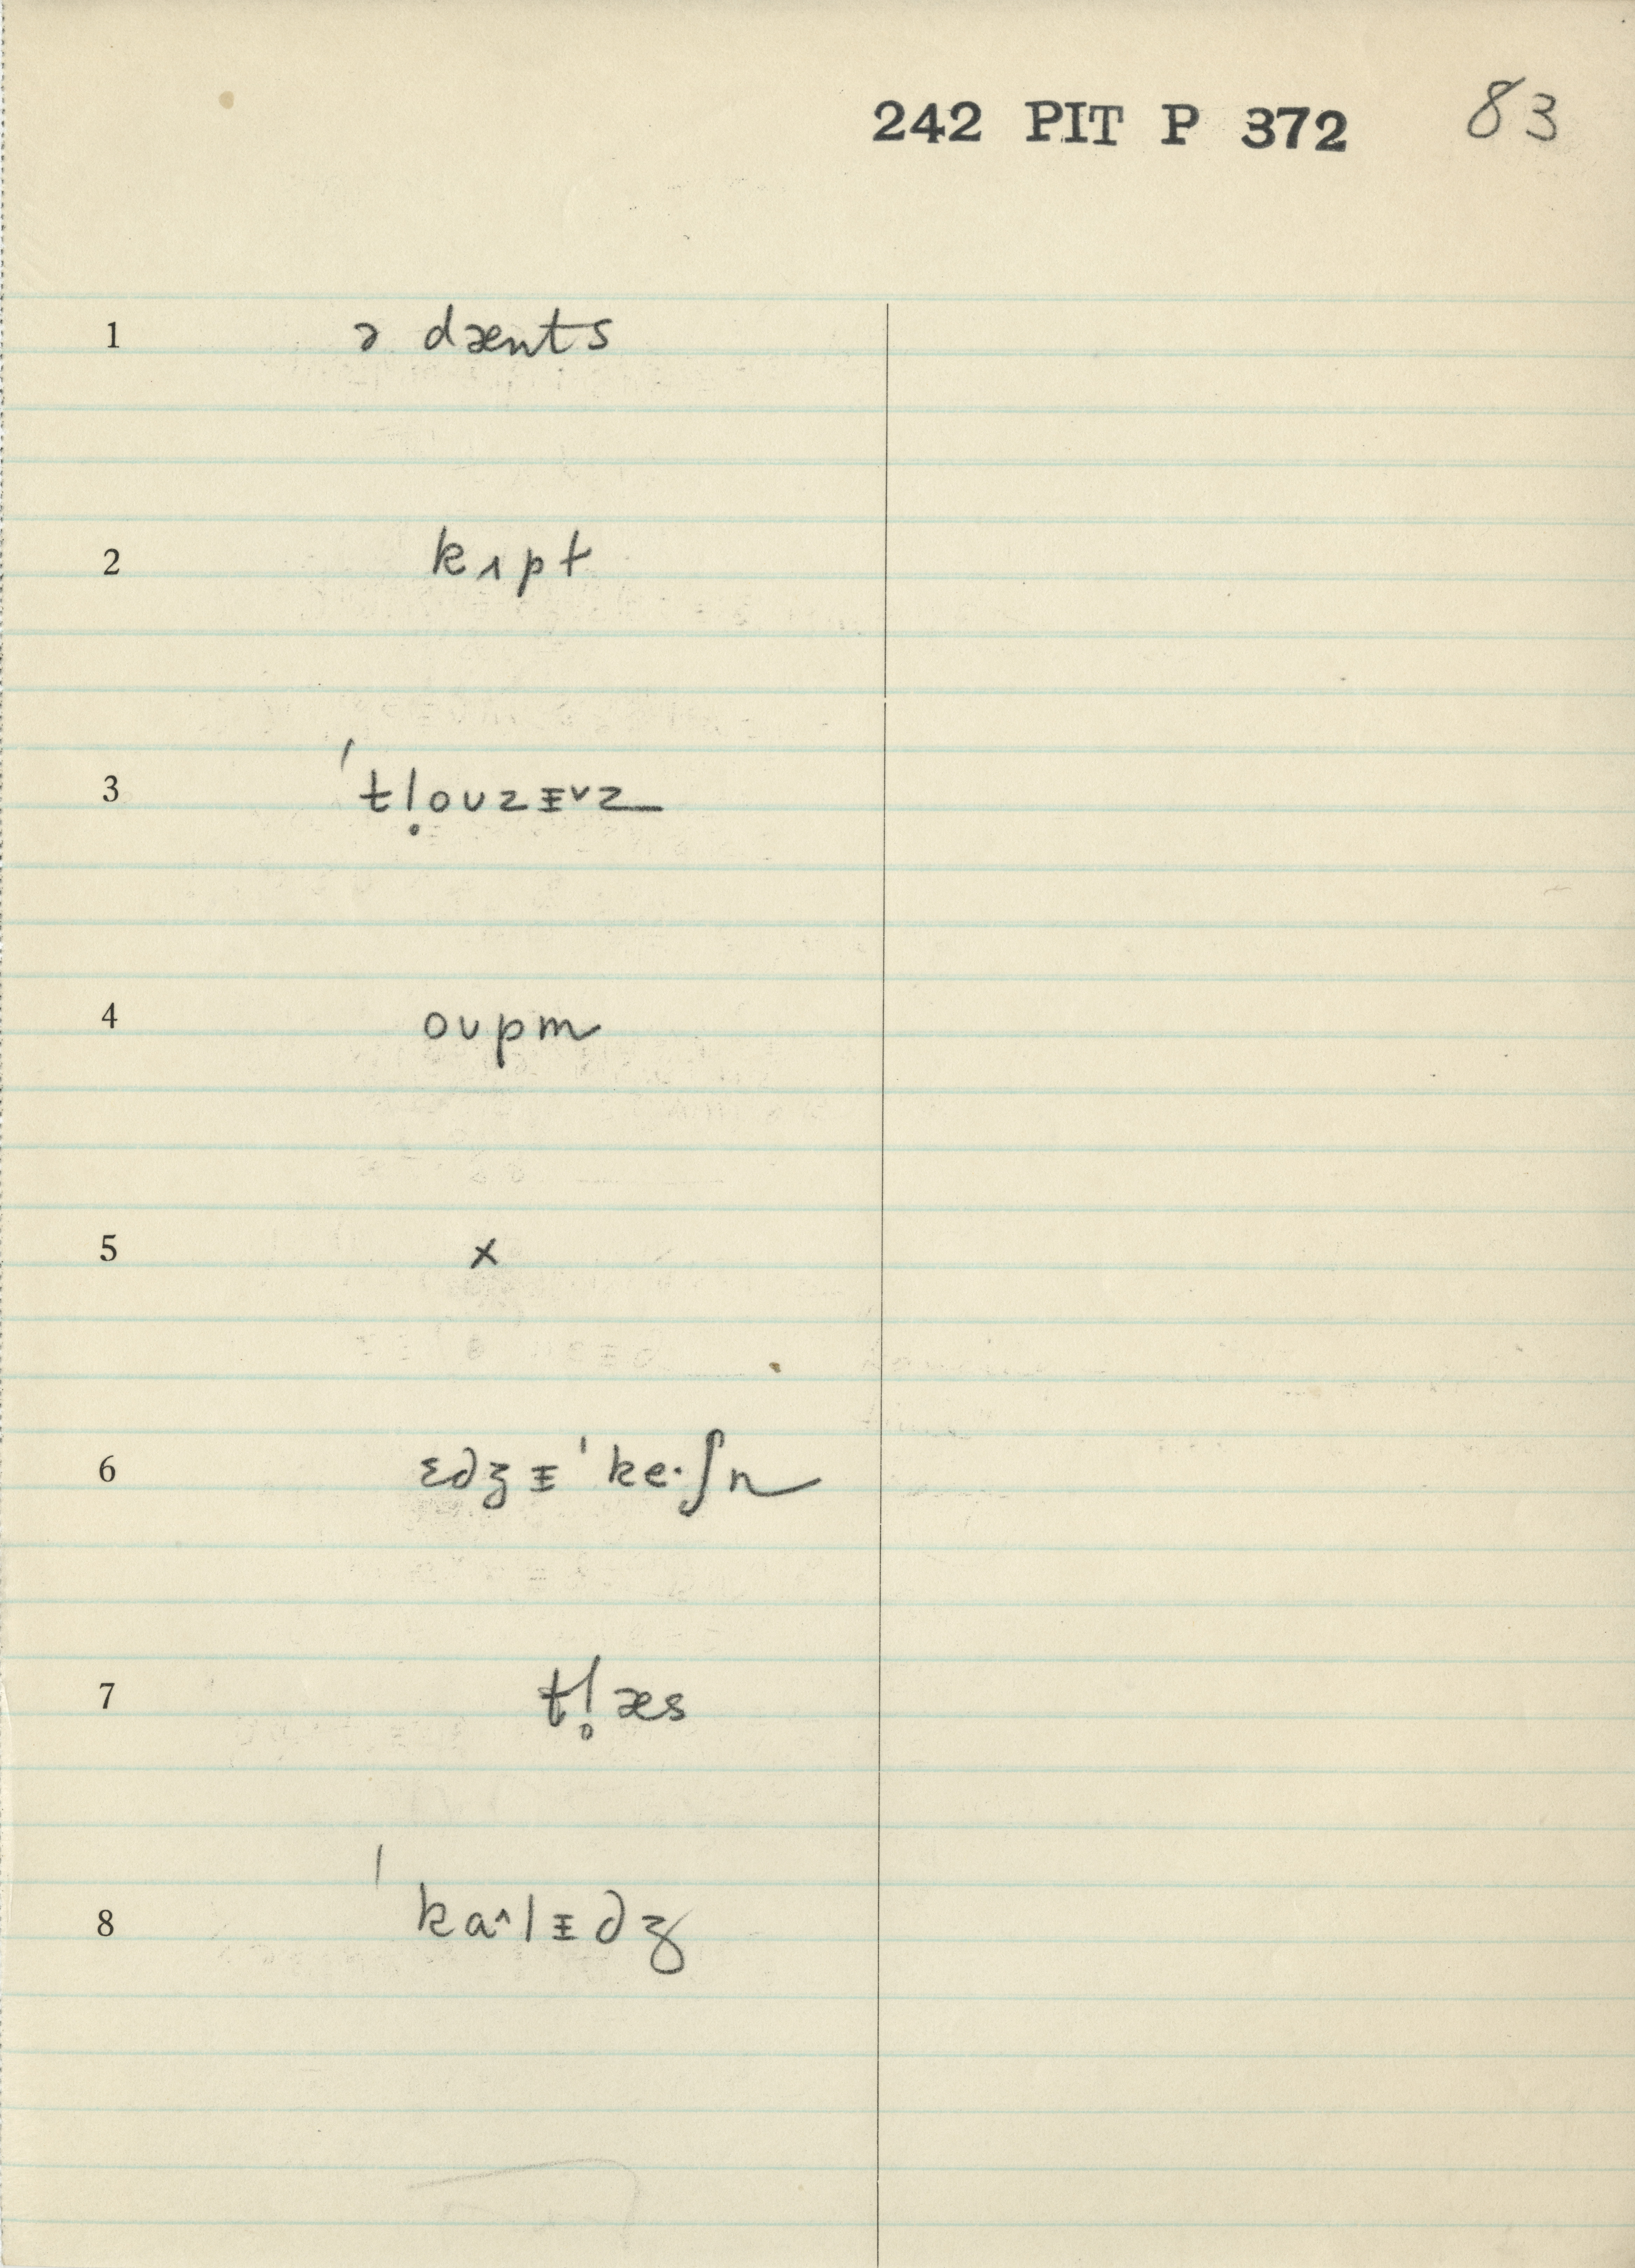 242 PIT P 372 83
1 ə dænts
2 kɪpt
3 ˈtʃl̥oʊzɪ̵ᵛz
4 oʊpm
5 x
6 ɛdʒɪ̵ˈke·ʃn
7 tl̥æs
8 ˈkɑ^lɪ̵dʒ